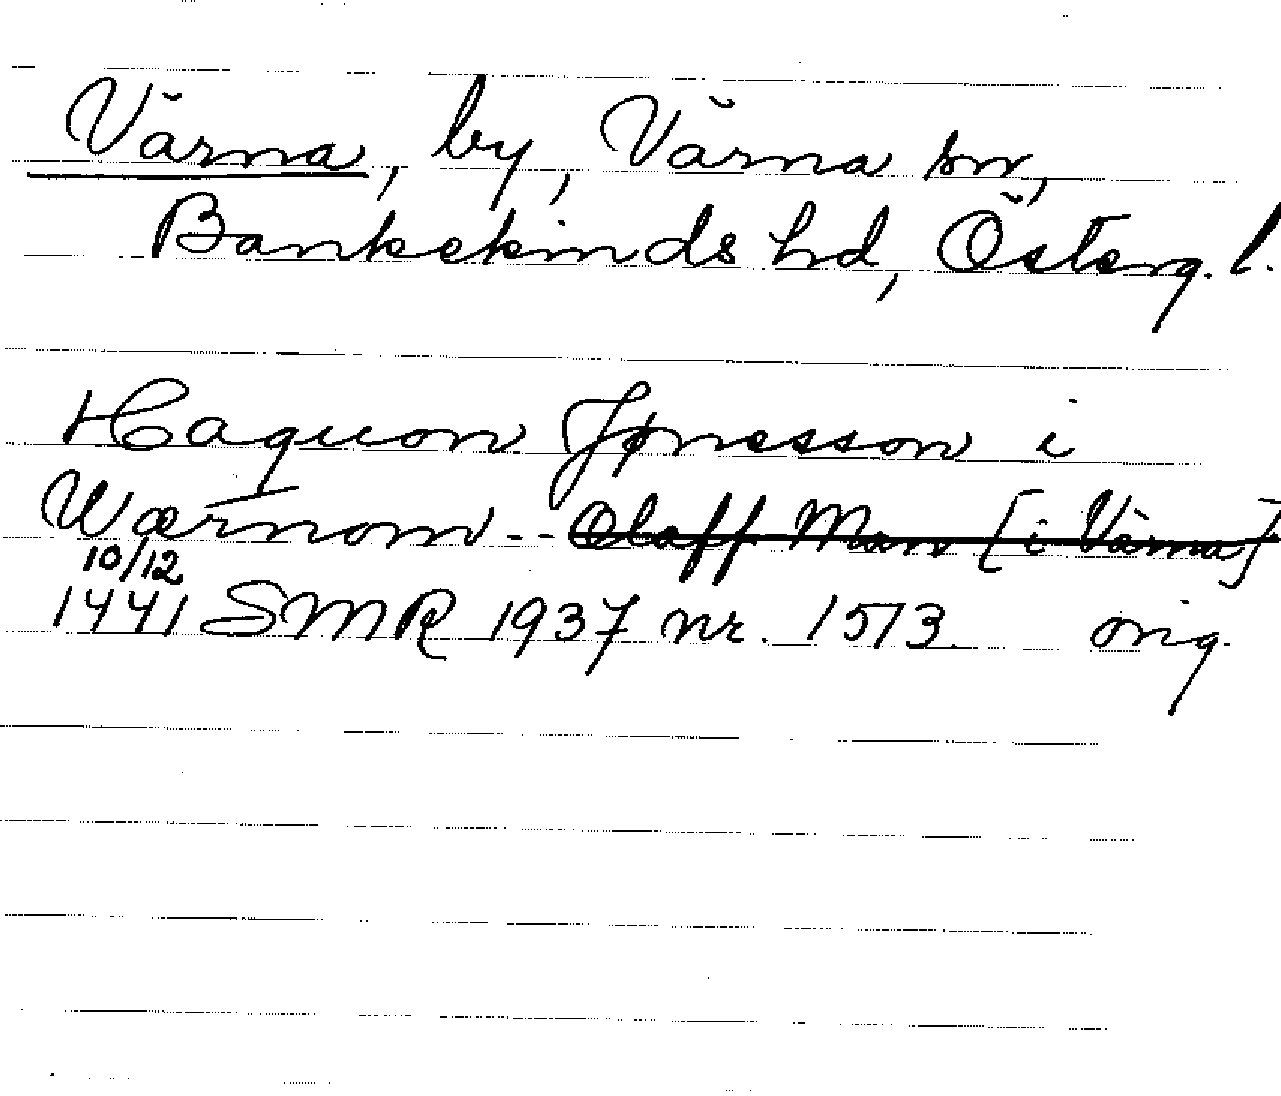 Värna, by, Värna sn,
Bankekinds hd, Österg. l.
Haquon Jønesson i
Wærnom -- Olaff Man [i Värna]
10/12
1441 SMR 1937 nr. 1513. orig.